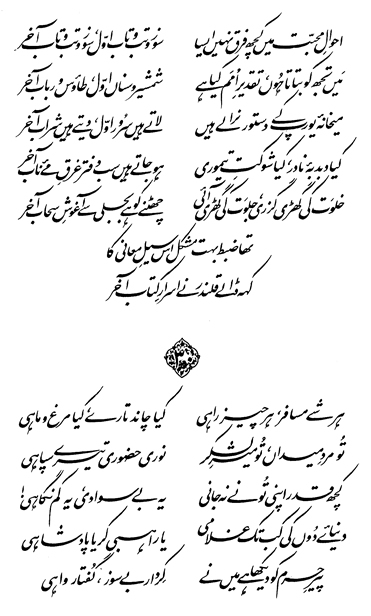 احوالِ محبت میں کچھ فرق نہیں ایسا سوز و تب و تاب اوّل، سوز و تب و تاب آخر
میں تجھ کو بتاتا ہوں، تقدیرِ اُمَم کیا ہے شمشیر و سناں اوّل، طاؤس و رباب آخر
میخانۂ یورپ کے دستور نرالے ہیں لاتے ہیں سرور اوّل، دیتے ہیں شراب آخر
کیا دبدبۂ نادر، کیا شوکتِ تیموری ہو جاتے ہیں سب دفتر غرقِ مئے ناب آخر
خلوت کی گھڑی گزری، جلوت کی گھڑی آئی چھٹنے کو ہے بجلی سے آغوشِ سحاب آخر
تھا ضبط بہت مشکل اس سیلِ معانی کا
کہہ ڈالے قلندر نے اسرارِ کتاب آخر
ہر شے مسافر، ہر چیز راہی کیا چاند تارے، کیا مرغ و ماہی
تُو مردِ میداں، تُو میرِ لشکر نوری حضوری تیرے سپاہی
کچھ قدر اپنی تُو نے نہ جانی یہ بے سوادی، یہ کم نگاہی!
دنیائے دُوں کی کب تک غلامی یا راہبی کر یا پادشاہی
پیرِ حرم کو دیکھا ہے میں نے کردار بے سوز، گُفتار واہی